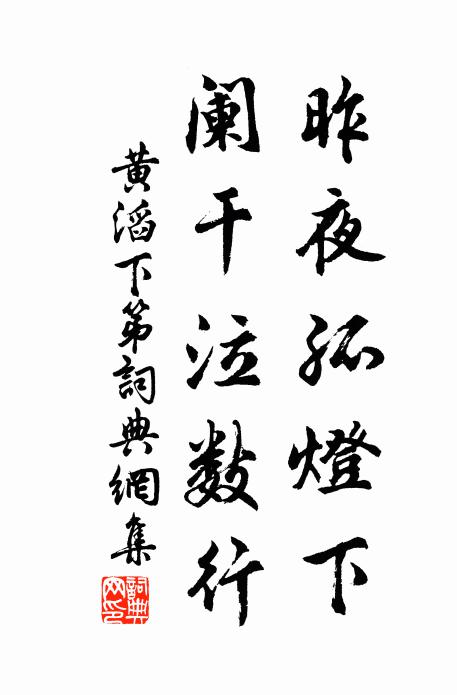 昨夜孤燈下
阑干泣数行
黄滔下第詞典網集
詞典网印